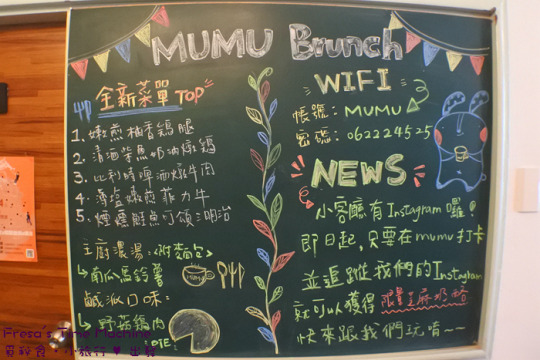 MUMU Brunch
全新菜單 TOP
1. 嫩煎柚香雞腿
2. 清酒柴魚奶油燉雞
3. 比利時啤酒燉牛肉
4. 薄鹽嫩煎菲力牛
5. 煙燻鮭魚可頌三明治
主廚濃湯：<附麵包>
↳南瓜馬鈴薯
鹹派口味：
↳野菇雞肉
PIE.
WIFI
帳號：MUMU
密碼：062224525
NEWS
小客廳有Instagram囉！
即日起，只要在mumu打卡
並追蹤我們的Instagram
就可以獲得
快來跟我們玩唷～～
Fresa's Time Machine
覓秘食•小旅行♥出發